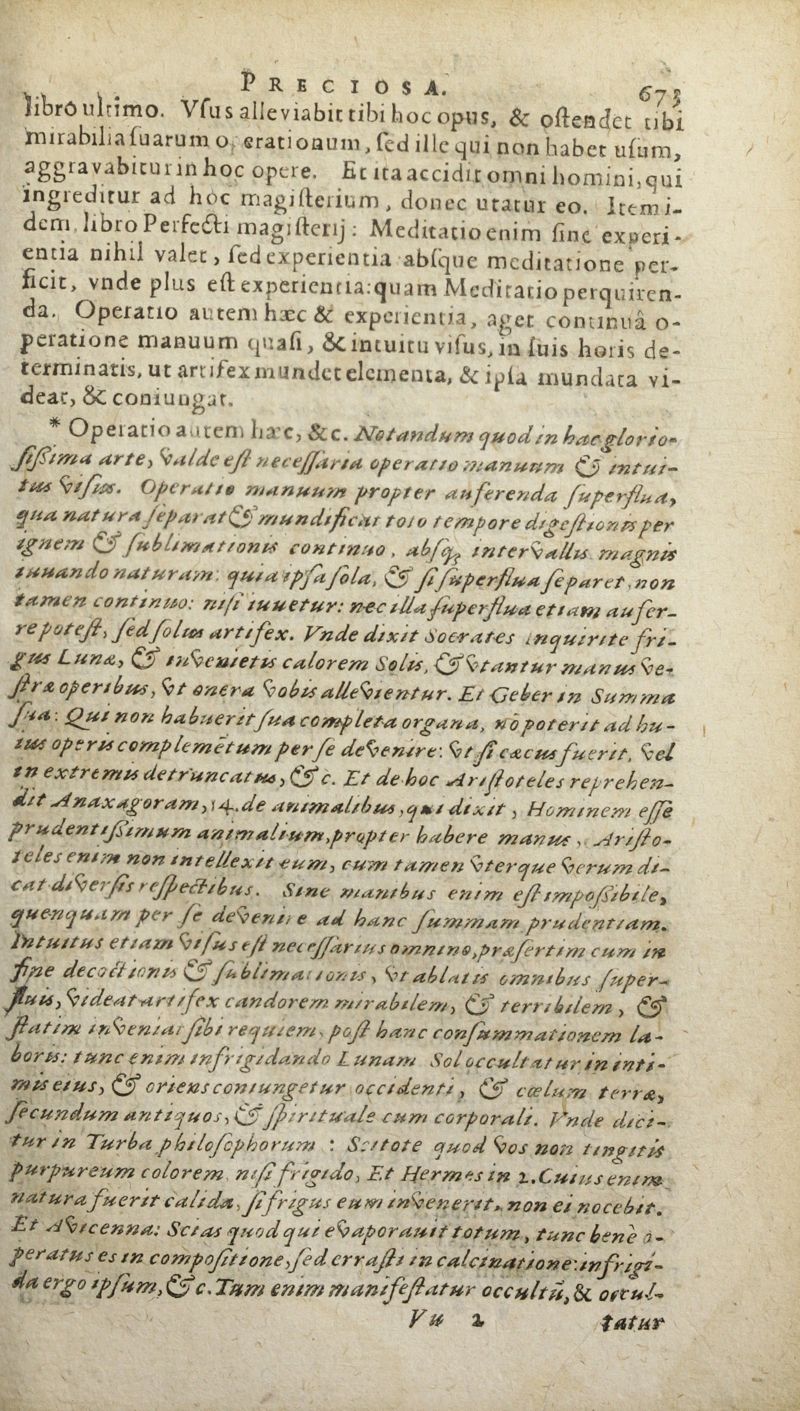 PRECIOSA. 675
libro ultimo. Vſus alleviabit tibi hoc opus, & oſtendet tibi
mirabilia ſuarum operationum, ſed ille qui non habet uſum,
aggravabitur in hoc opere. Et ita accidit omni homini, qui
ingreditur ad hoc magiſterium, donec utatur eo. Item i-
dem libro Perfecti magiſterij: Meditatio enim ſine experi-
entia nihil valet, ſed experientia abſque meditatione per-
ficit, vnde plus eſt experientia: quam Meditatio perquiren-
da. Operatio autem hæc & experientia, aget continuâ o-
peratione manuum quaſi, & intuitu viſus, in ſuis horis de-
terminatis, ut artifex mundet elementa, & ipſa mundata vi-
deat, & coniungat.
* Operatio autem hæc, &c. Notandum quod in hac glorio-
ſiſſima arte, valde eſt neceſſaria operatio manuum & intui-
tus viſus. Operatio manuum propter auferenda ſuperflua,
quæ natura ſeparat & mundificat toto tempore digeſtionis per
ignem & ſublimationis continuo, abſq; intervallis magnis
iuuando naturam: quia ipſa ſola, & ſi ſuperflua ſeparet, non
tamen continuo: niſi iuuetur: nec illa ſuperflua etiam aufer-
re poteſt, ſed ſolus artifex. Vnde dixit Socrates inquirite fri-
gus Lunæ, & invenietis calorem Solis, & vtantur manus ve-
ſtræ operibus, vt onera vobis allevientur. Et Geber in Summa
ſua: Qui non habuerit ſua completa organa, nō poterit ad hu-
ius operis complemētum per ſe devenire: vt ſi cæcus fuerit, vel
in extremis detruncatus, &c. Et de hoc Ariſtoteles reprehen-
dit Anaxagoram, 14. de animalibus, qui dixit, Hominem eſſe
prudentiſſimum animalium, propter habere manus, Ariſto-
teles enim non intellexit eum, cum tamen vterque verum di-
cat diverſis reſpectibus. Sine manibus enim eſt impoſſibile,
quenquam per ſe devenire ad hanc ſummam prudentiam.
Intuitus etiam viſus eſt neceſſarius omnino, præſertim cum in
fine decoctionis & ſublimationis, vt ablatis omnibus ſuper-
fluis, videat artifex candorem mirabilem, & terribilem, &
ſtatim inveniat ſibi requiem, poſt hanc conſummationem la-
boris: tunc enim infrigidando Lunam Sol occultatur in inti-
mis eius, & oriens coniungetur occidenti, & cœlum terræ,
ſecundum antiquos, & ſpirituale cum corporali. Vnde dici-
tur in Turba philoſophorum: Scitote quod vos non tingitis
purpureum colorem, niſi frigido, Et Hermes in 2. Cuius enim
natura fuerit calida, ſi frigus eum invenerit, non ei nocebit.
Et Avicenna: Scias quod qui evaporauit totum, tunc bene o-
peratus es in compoſitione, ſed erraſti in calcinatione: infrigi-
da ergo ipſum, &c. Tum enim manifeſtatur occultū, & occul-
Vu 2 tatur